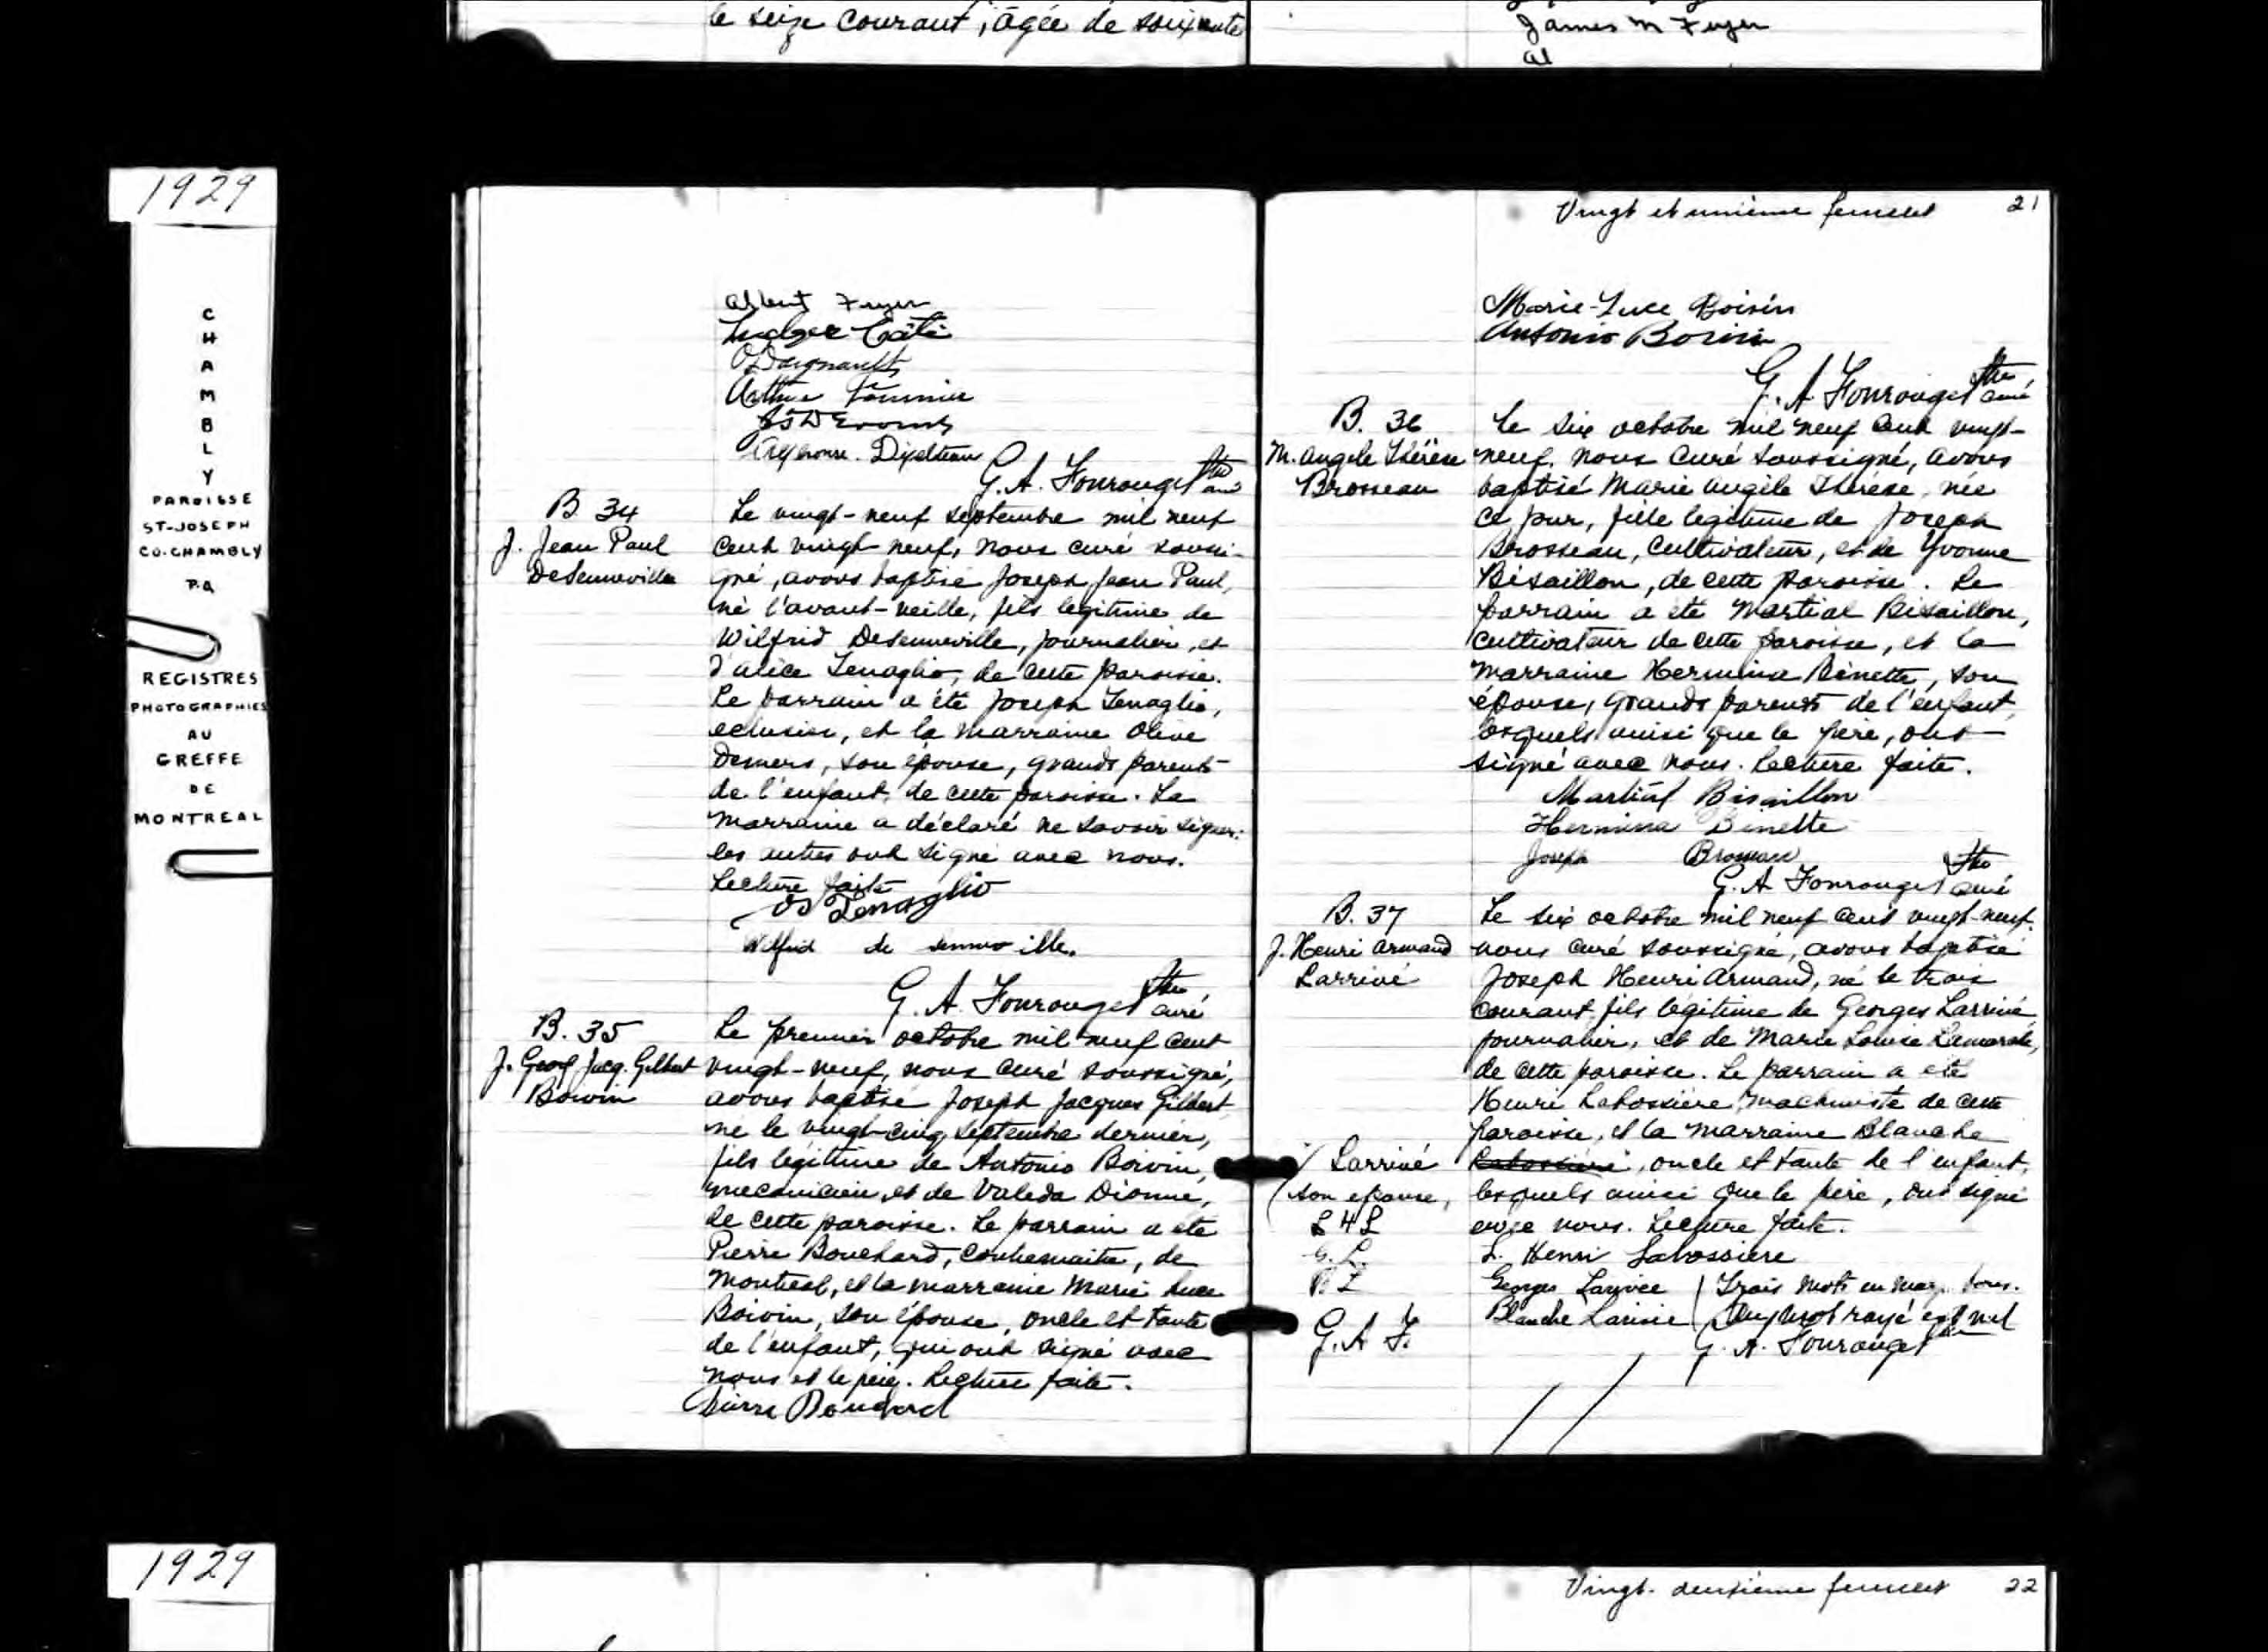 le seize courant, agée de soixante
James M Fryer
al
1929
CHAMBLY
PAROISSE
ST-JOSEPH
CO. CHAMBLY
P.Q
REGISTRES
PHOTOGRAPHIES
AU
GREFFE
DE
MONTREAL
Albert Fryer
Ludger Côté
Arthur
G. A. Fourouge ptre
curé
B. 34
J. Jean Paul
DeSenneville
Le vingt-neuf septembre mil neuf
cent vingt-neuf, nous curé soussi-
gné, avons baptisé Joseph Jean Paul,
né l'avant-veille, fils legitime de
Wilfrid DeSenneville, journalier, et
d'Alice Tenaglio, de cette paroisse.
Le parrain a été Joseph Tenaglio,
eclusier, et la marraine Olive
Demers, son épouse, grands parents
de l'enfant, de cette paroisse. La
marraine a déclaré ne savoir signer.
les autres ont signé avec nous.
Lecture faite
Js Tenaglio
Wilfrid de senneville.
G. A. Fourouge ptre,
curé
B. 35
J. Geo Jacq. Gilbert
Boivin
Le premier octobre mil neuf cent
vingt-neuf, nous curé soussigné,
avons baptisé Joseph Jacques Gilbert
né le vingt-cinq septembre dernier,
fils légitime de Antonio Boivin,
mecanicien, et de Valeda Dionne,
de cette paroisse. Le parrain a été
Pierre Bouchard, contremaitre, de
Montreal, et la marraine Marie Luce
Boivin, son épouse, oncle et tante
de l'enfant, qui ont signé avec
nous et le père. Lecture faite.
Pierre Bouchard
Vingt et unième feuillet 21
Marie-Luce Boivin
Antonio Boivin
G. A. Fourouge ptre,
curé
B. 36
M. Angele Thérèse
Brosseau
Le six octobre mil neuf cent vingt-
neuf, nous curé soussigné, avons
baptisé Marie Angèle Thérèse, née
ce jour, fille legitime de Joseph
Brosseau, cultivateur, et de Yvonne
Bisaillon, de cette paroisse. Le
parrain a été Martial Bisaillon,
cultivateur de cette paroisse, et la
marraine Hermina Binette, son
épouse, grands parents de l'enfant,
lesquels ainsi que le père, ont
signé avec nous. Lecture faite.
Martial Bisaillon
Hermina Binette
Joseph Brosseau
G. A. Fourouge ptre
curé
B. 37
J. Henri Armand
Larrivé
Le six octobre mil neuf cent vingt-neuf.
nous curé soussigné, avons baptisé
Joseph Henri Armand, né le trois
courant, fils légitime de Georges Larrivé,
journalier, et de Marie Louise Lamarche,
de cette paroisse. Le parrain a été
Henri Labossière machiniste de cette
paroisse, et la marraine Blanche
Labossière, oncle et tante de l'enfant,
lesquels ainsi que le père, ont signé
avec nous. Lecture faite.
Larrivé
son épouse,
L H L
G. L.
B. L
G. A F.
L. Henri Labossiere
Georges Larivée
Blanche Larivée
Trois mots en marg. bons.
Un mot rayé est nul
G. A. Fourouge ptre
1929
Vingt-deuxième feuillet 22